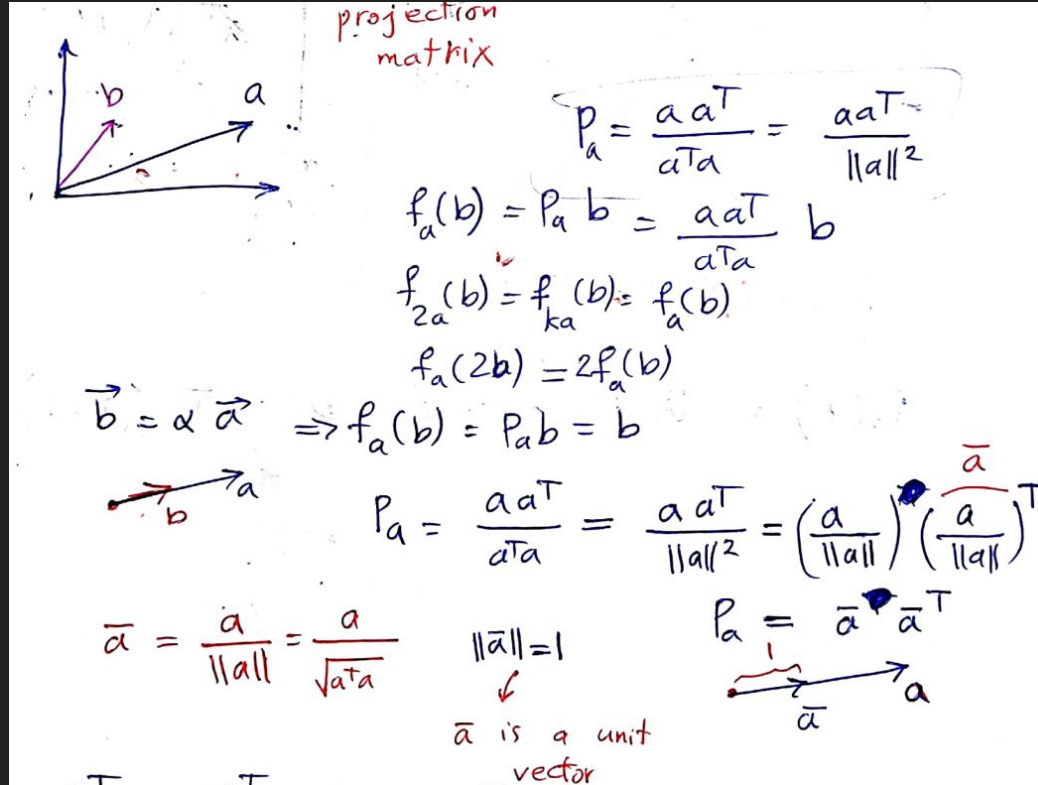 projection
matrix
b a
P_a = a a^T / a^T a = a a^T / ||a||^2
f_a(b) = P_a b = a a^T / a^T a b
f_2a(b) = f_ka(b) = f_a(b)
f_a(2b) = 2f_a(b)
b⃗ = α a⃗ ⇒ f_a(b) = P_a b = b
a
b
ā
P_a = a a^T / a^T a = a a^T / ||a||^2 = (a / ||a||) (a / ||a||)^T
P_a = ā ā^T
ā = a / ||a|| = a / √a^T a ||ā|| = 1
1
a
ā
ā is a unit
vector
T T